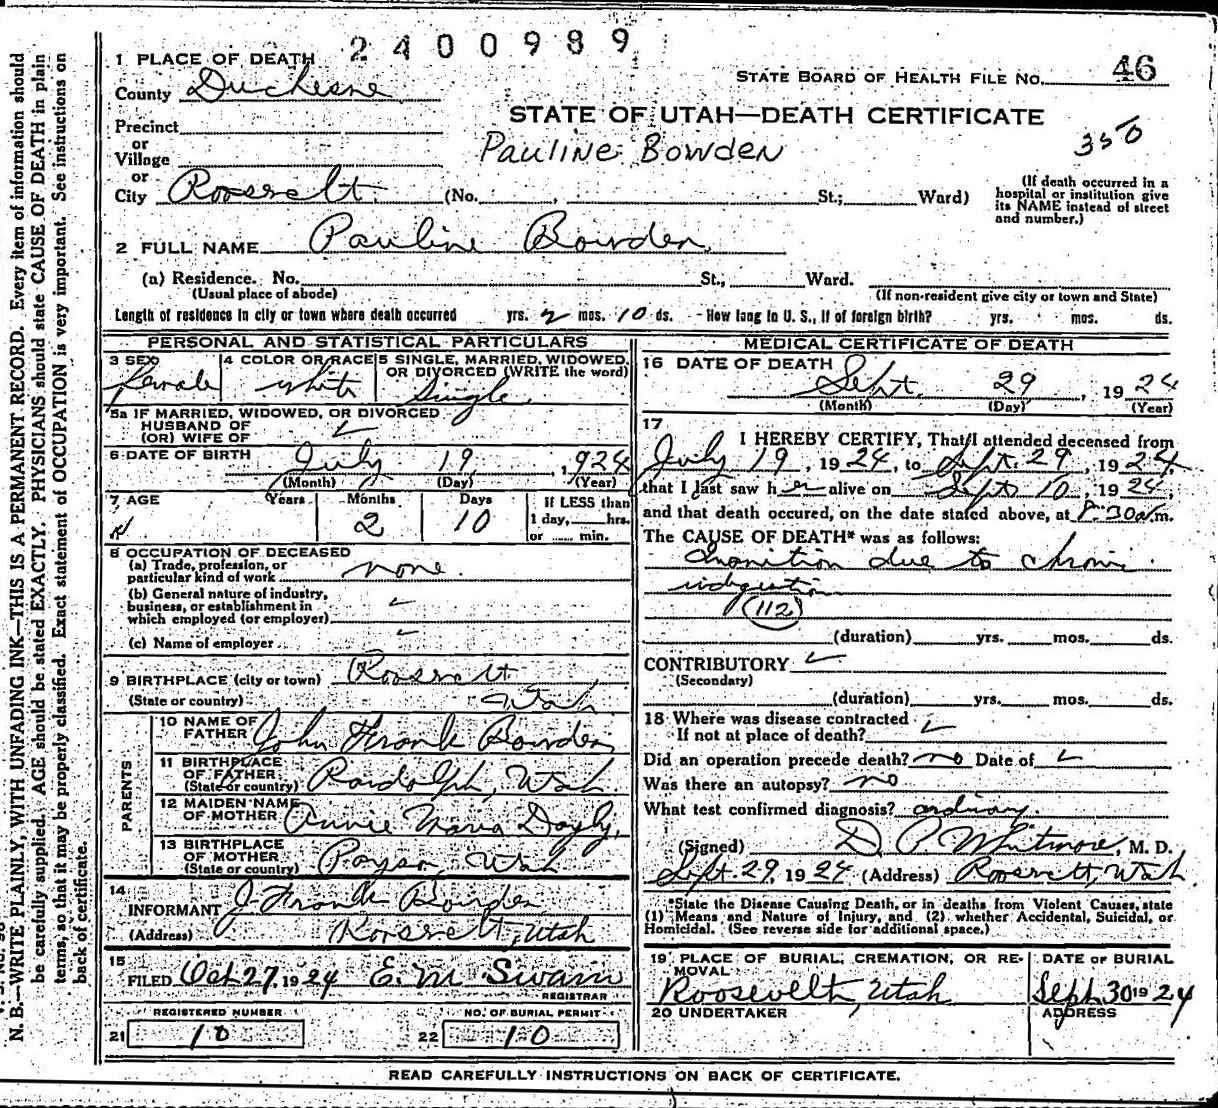 2400989
1 PLACE OF DEATH
STATE BOARD OF HEALTH FILE NO. 46
County Duchesne
STATE OF UTAH—DEATH CERTIFICATE
Precinct
or
Village
Pauline Bowden
350
or
City Roosevelt (No. , St.; Ward)
(If death occurred in a
hospital or institution give
its NAME instead of street
and number.)
2 FULL NAME Pauline Bowden
(a) Residence. No. St., Ward.
(Usual place of abode)
(If non-resident give city or town and State)
Length of residence in city or town where death occurred yrs. 2 mos. 10 ds. - How long in U. S., if of foreign birth? yrs. mos. ds.
PERSONAL AND STATISTICAL PARTICULARS
3 SEX
Female
4 COLOR OR RACE
white
5 SINGLE, MARRIED, WIDOWED,
OR DIVORCED (WRITE the word)
Single
5a IF MARRIED, WIDOWED, OR DIVORCED
HUSBAND OF
(OR) WIFE OF
6 DATE OF BIRTH
July 19, 1924
(Month) (Day) (Year)
7 AGE
Years Months Days
2 10
If LESS than
1 day, hrs.
or min.
8 OCCUPATION OF DECEASED
(a) Trade, profession, or
particular kind of work none.
(b) General nature of industry,
business, or establishment in
which employed (or employer)
(c) Name of employer
9 BIRTHPLACE (city or town) Roosevelt
(State or country) Utah
PARENTS
10 NAME OF
FATHER John Frank Bowden
11 BIRTHPLACE
OF FATHER
(State or country) Randolph, Utah
12 MAIDEN NAME
OF MOTHER Annie Maria
13 BIRTHPLACE
OF MOTHER
(State or country) Payson, Utah
14
INFORMANT J Frank Bowden
(Address) Roosevelt, Utah
15
FILED Oct 27, 1924 E. M. Swain
REGISTRAR
REGISTERED NUMBER
21 10
NO. OF BURIAL PERMIT
22 10
MEDICAL CERTIFICATE OF DEATH
16 DATE OF DEATH
Sept. 29, 1924
(Month) (Day) (Year)
17
I HEREBY CERTIFY, That I attended deceased from
July 19, 1924, to Sept. 29, 1924,
that I last saw her alive on Sept 10, 1924,
and that death occured, on the date stated above, at 8:30 a.m.
The CAUSE OF DEATH* was as follows:
Inanition due to chronic
indigestion
(112)
(duration) yrs. mos. ds.
CONTRIBUTORY
(Secondary)
(duration) yrs. mos. ds.
18 Where was disease contracted
If not at place of death?
Did an operation precede death? no Date of
Was there an autopsy? no
What test confirmed diagnosis? ordinary.
(Signed) Whitmore, M. D.
Sept. 29, 1924 (Address) Roosevelt, Utah
*State the Disease Causing Death, or in deaths from Violent Causes, state
(1) Means and Nature of Injury, and (2) whether Accidental, Suicidal, or
Homicidal. (See reverse side for additional space.)
19 PLACE OF BURIAL, CREMATION, OR RE-
MOVAL
Roosevelt, Utah
DATE OF BURIAL
Sept 30 1924
20 UNDERTAKER
ADDRESS
READ CAREFULLY INSTRUCTIONS ON BACK OF CERTIFICATE.
N. B.—WRITE PLAINLY, WITH UNFADING INK—THIS IS A PERMANENT RECORD. Every item of information should
be carefully supplied. AGE should be stated EXACTLY. PHYSICIANS should state CAUSE OF DEATH in plain
terms, so that it may be properly classified. Exact statement of OCCUPATION is very important. See instructions on
back of certificate.